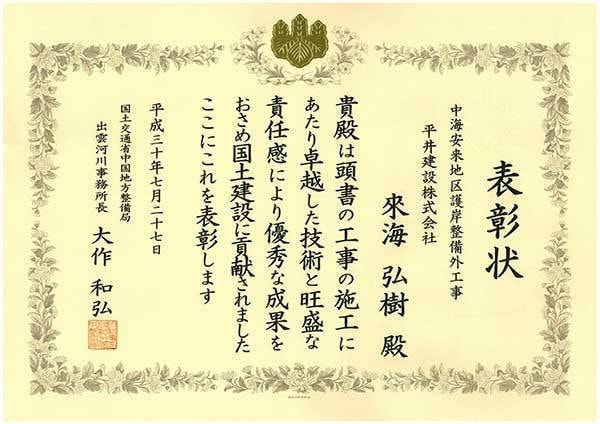 表彰状
中海安来地区護岸整備外工事
平井建設株式会社
來海 弘樹 殿
貴殿は頭書の工事の施工に
あたり卓越した技術と旺盛な
責任感により優秀な成果を
おさめ国土建設に貢献されました
ここにこれを表彰します
平成三十年七月二十七日
国土交通省中国地方整備局
出雲河川事務所長 大作 和弘